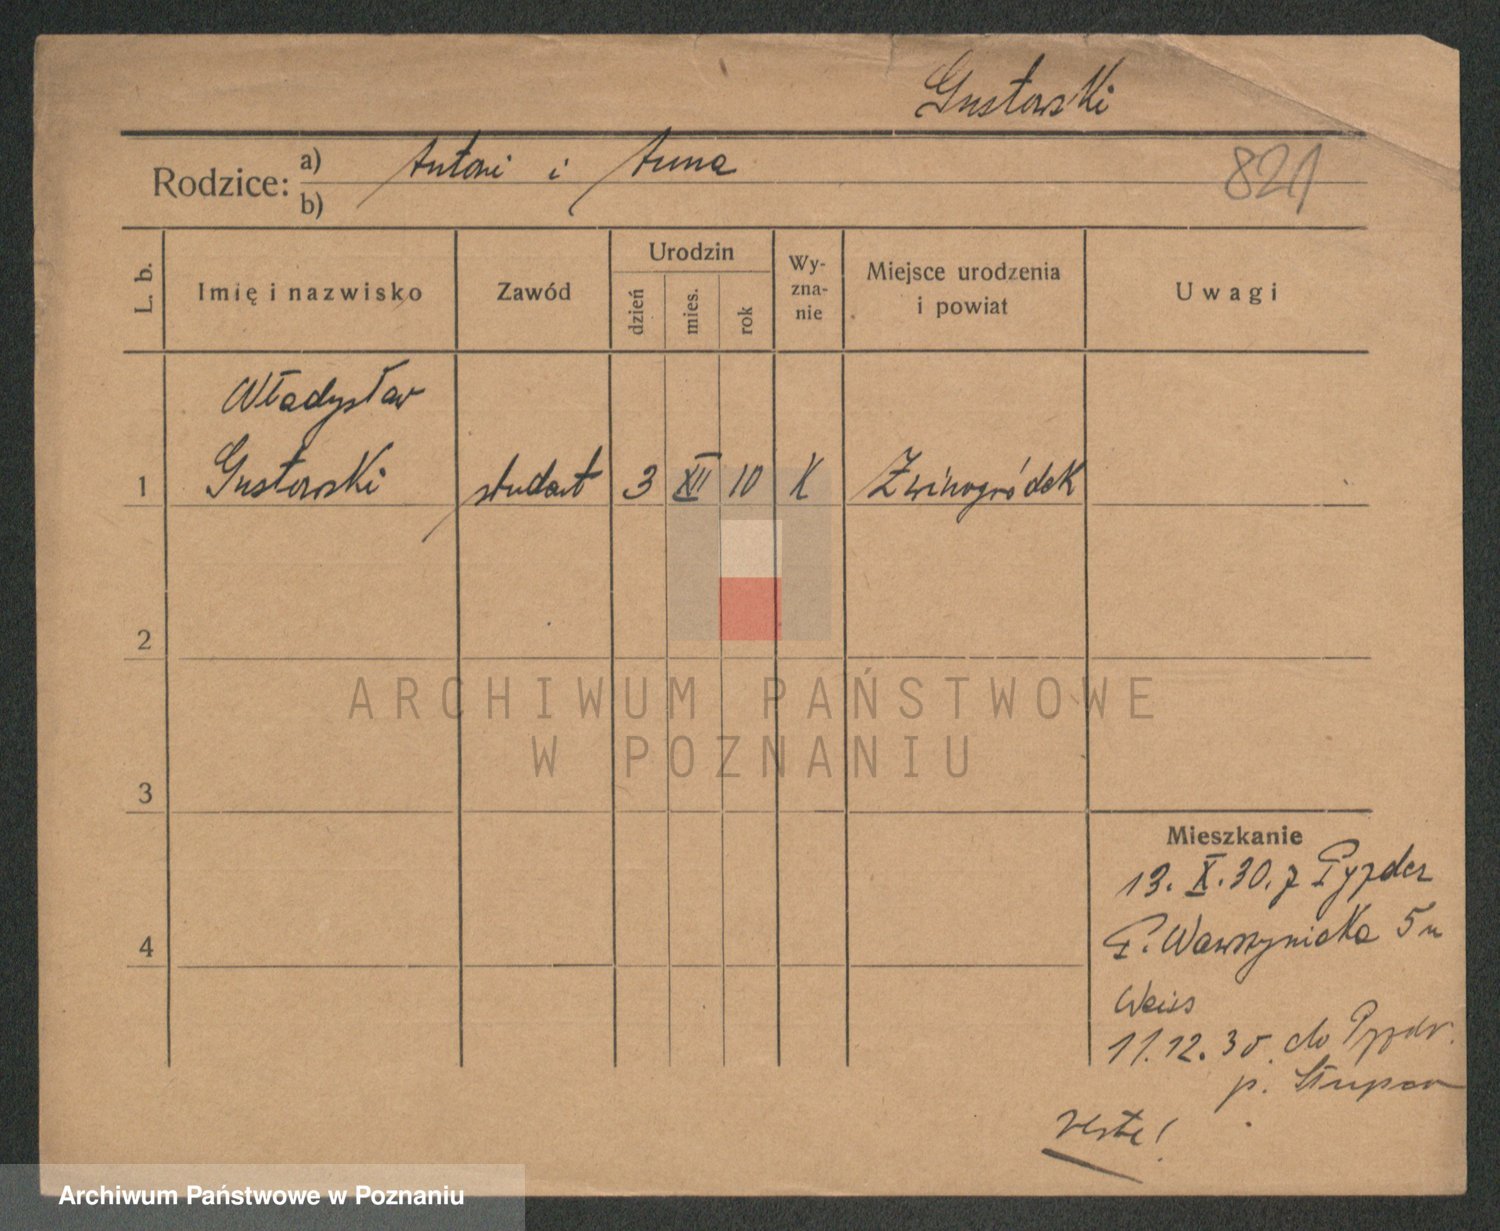 Gustowski
821
Rodzice: a) Antoni i Anna
b)
L. b.
Imię i nazwisko
Zawód
Urodzin
dzień
mies.
rok
Wy-
zna-
nie
Miejsce urodzenia
i powiat
Uwagi
Władysław
1 Gustowski student 3 XII 10 K Zwinogródek
2
3
4
Mieszkanie
13. X. 30. z Pyzder
P. Wawrzyniaka 5
Weiss
11.12.30. do Pyzdr.
p.
verte!
ARCHIWUM PAŃSTWOWE
W POZNANIU
Archiwum Państwowe w Poznaniu